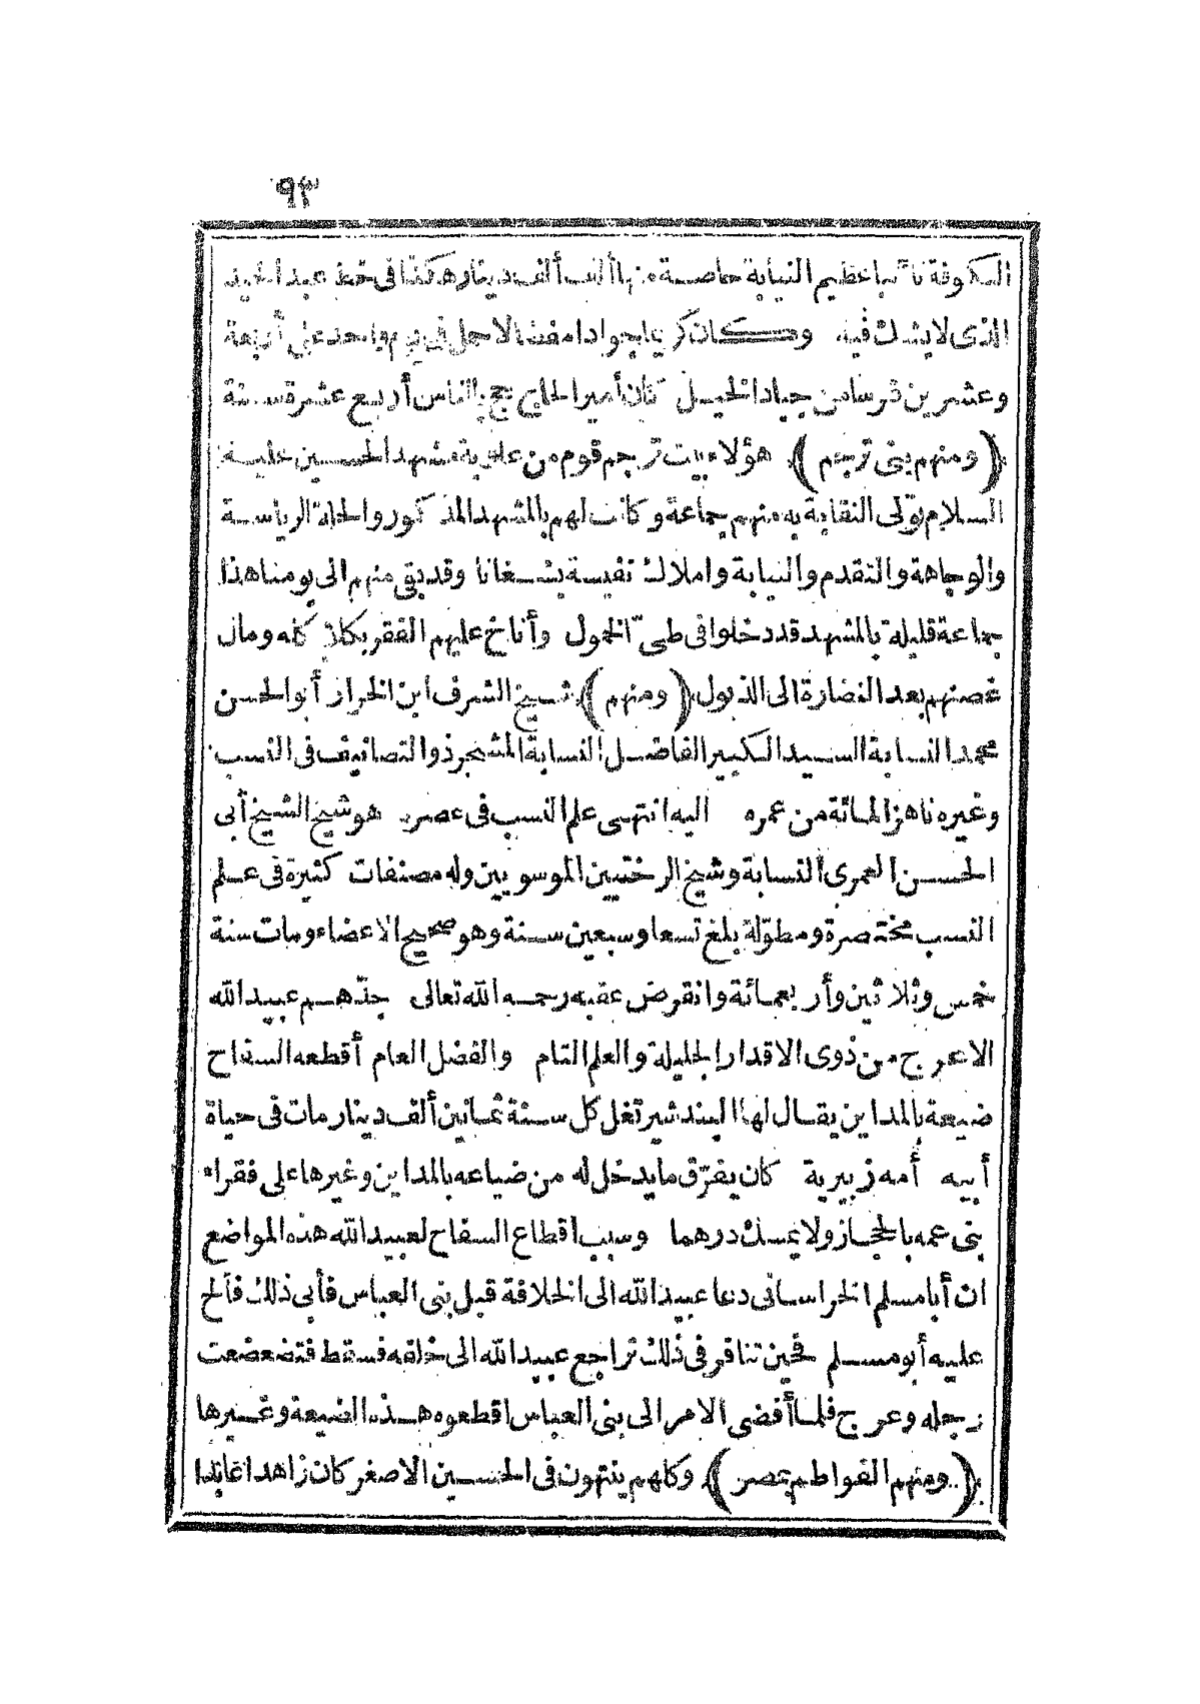 ٩٣
الكوفة نائبا عظيم النيابة خاصة منها ألف ألف دينار هكذا فى خط عبد الحميد
الذى لا يشك فيه وكان كريما جوادا الاجل فى يوم واحد على أربعة
وعشرين فرسا من جياد الخيل كان أمير الحاج حج بالناس أربع عشرة سنة
﴿ومنهم بنى ترجم﴾ هؤلاء بيت ترجم قوم من علوية مشهد الحسين عليه
السلام تولى النقابة به منهم جماعة وكانت لهم بالمشهد المذكور والحلة الرياسة
والوجاهة والتقدم والنيابة واملاك نفيسة وقد بقى منهم الى يومنا هذا
جماعة قليلة بالمشهد قد دخلوا فى طىّ الخمول وأناخ عليهم الفقر بكلاكله ومال
غصنهم بعد النضارة الى الذبول ﴿ومنهم﴾ شيخ الشرف ابن الخراز أبو الحسن
محمد النسابة السيد الكبير الفاضل النسابة المشجر ذو التصانيف فى النسب
وغيره ناهز المائة من عمره اليه انتهى علم النسب فى عصره هو شيخ الشيخ أبى
الحسن العمرى النسابة وشيخ الرضيين الموسويين وله مصنفات كثيرة فى علم
النسب مختصرة ومطوّلة بلغ تسعا وسبعين سنة وهو صحيح الاعضاء ومات سنة
خمس وثلاثين وأربعمائة وانقرض عقبه رحمه الله تعالى جدّهم عبيد الله
الاعرج من ذوى الاقدار الجليلة والعلم التام والفضل العام أقطعه السفاح
ضيعة بالمداين يقال لها البندشير تغل كل سنة ثمانين ألف دينار مات فى حياة
أبيه أمه زبيرية كان يفرّق ما يدخل له من ضياعه بالمداين وغيرها على فقراء
بنى عمه بالحجاز ولا يمسك درهما وسبب اقطاع السفاح لعبيد الله هذه المواضع
ان أبا مسلم الخراسانى دعا عبيد الله الى الخلافة قبل بنى العباس فأبى ذلك فألح
عليه أبو مسلم فحين تناقر فى ذلك تراجع عبيد الله الى خلفه فسقط فتضعضعت
رجله وعرج فلما أفضى الامر الى بنى العباس اقطعوه هذه الضيعة وغيرها
﴿ومنهم الفواطم بمصر﴾ وكلهم ينتهون فى الحسين الاصغر كان زاهدا عابدا